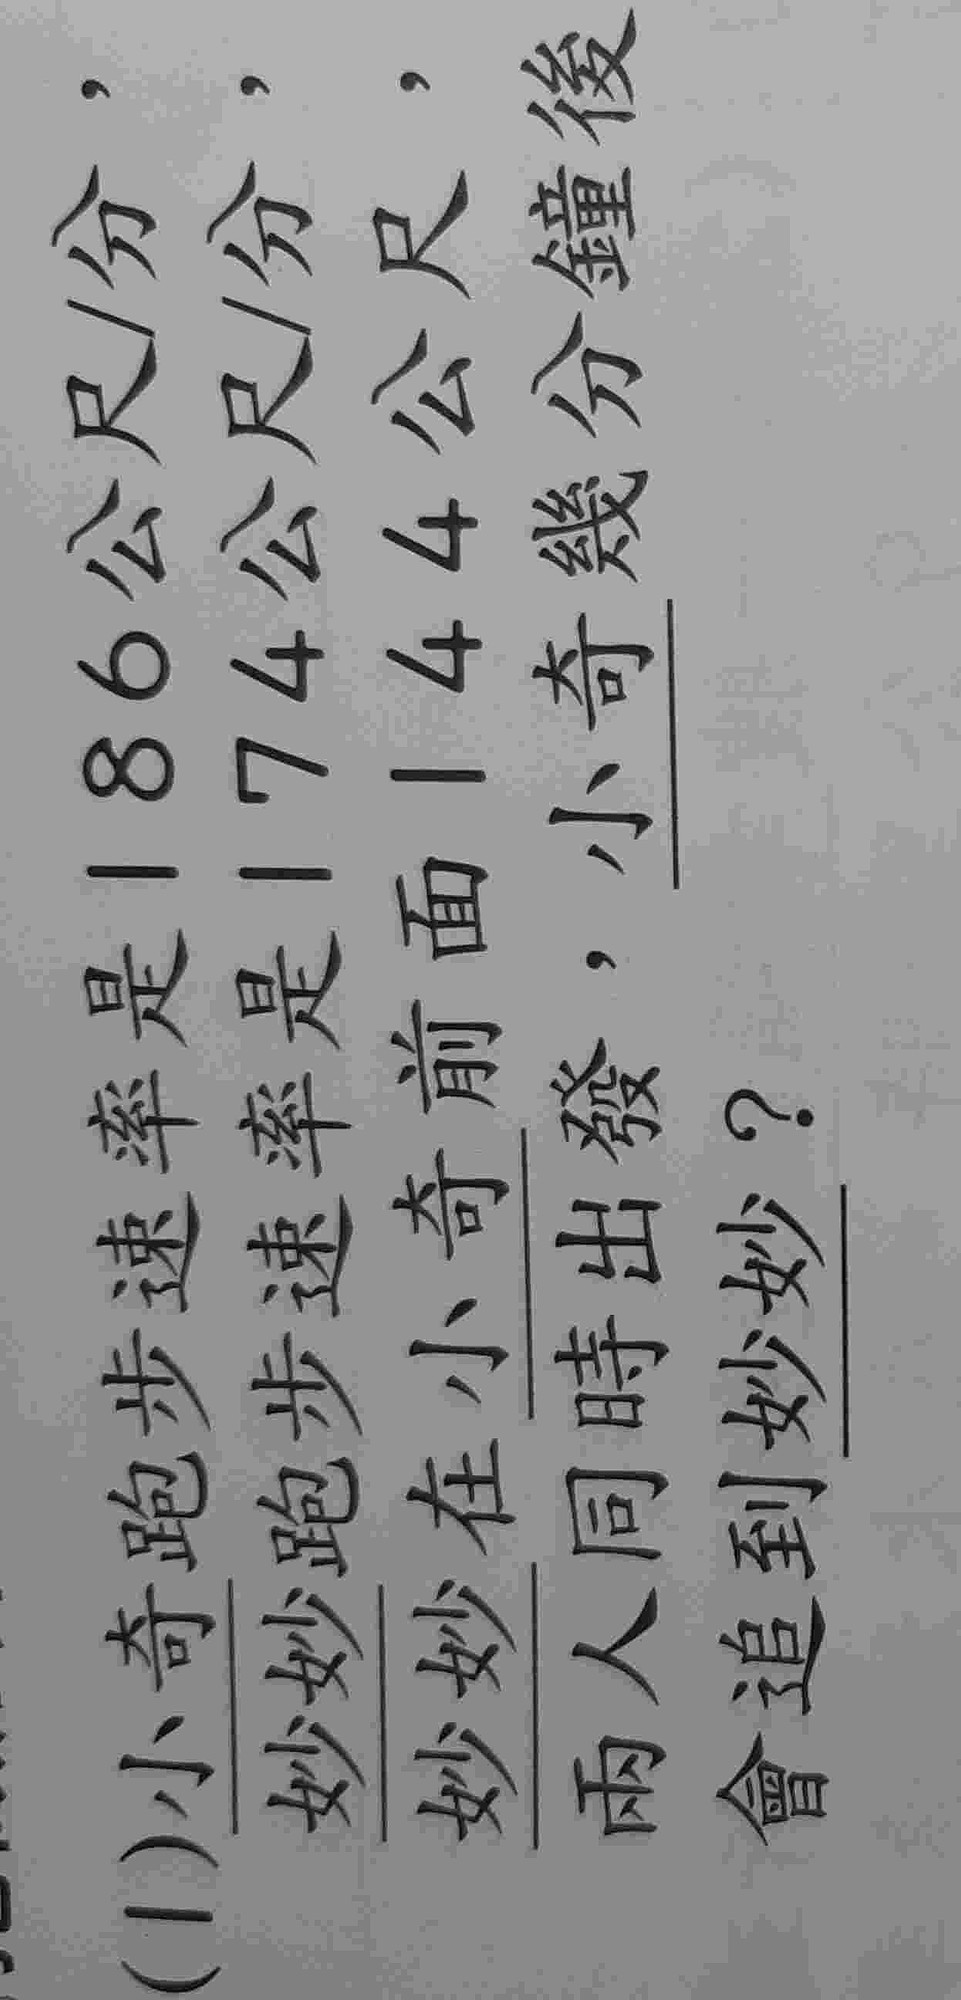 (1)小奇跑步速率是186公尺/分，
妙妙跑步速率是174公尺/分，
妙妙在小奇前面144公尺，
兩人同時出發，小奇幾分鐘後
會追到妙妙？